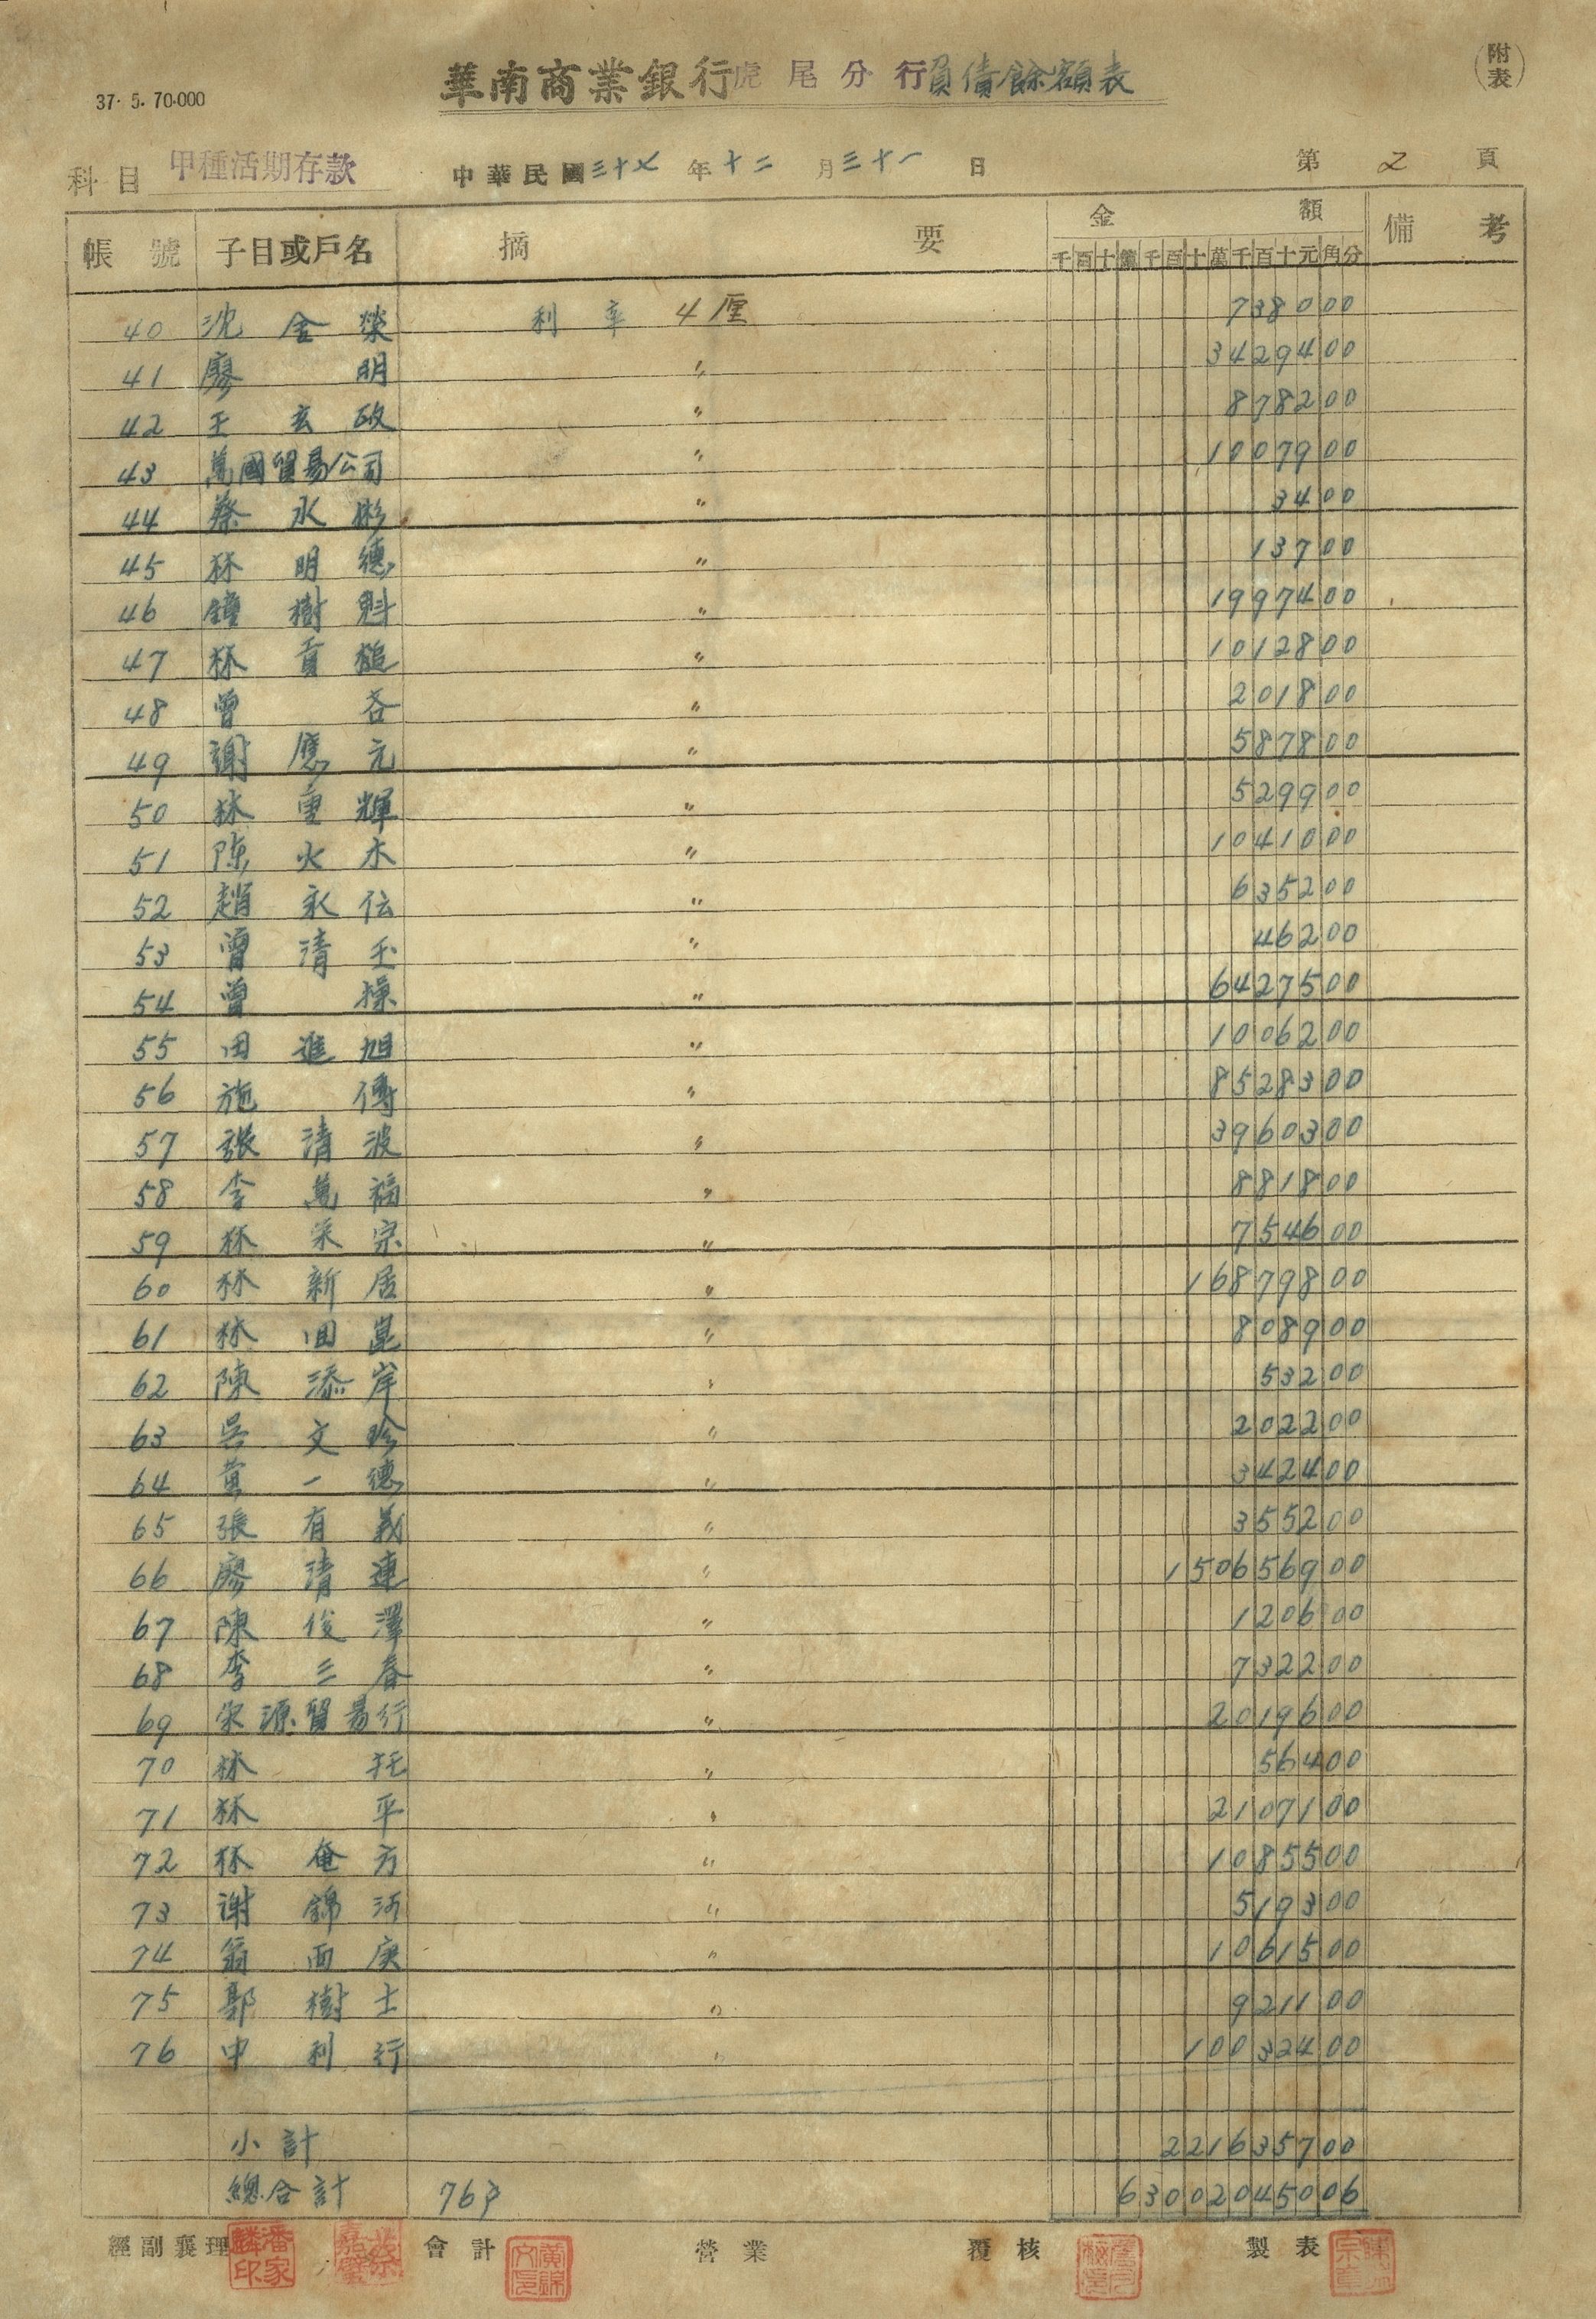 華南商業銀行虎尾分行負債餘額表
(附表)
37. 5. 70.000
科目 甲種活期存款 中華民國三十七年十二月三十一日 第 2 頁
帳號 子目或戶名 摘要 金額 備考
千百十億千百十萬千百十元角分
40 沈金榮 利率 4厘 738000
41 廖明 〃 3429400
42 王玄政 〃 878200
43 萬國貿易公司 〃 1007900
44 蔡水彬 〃 3400
45 林明德 〃 13700
46 鐘樹魁 〃 1997400
47 林貢槌 〃 1012800
48 曾吝 〃 201800
49 謝應元 〃 587800
50 林重輝 〃 529900
51 陳火木 〃 1041000
52 趙永伝 〃 635200
53 曾清玉 〃 46200
54 曾操 〃 6427500
55 田進旭 〃 1006200
56 施傳 〃 8528300
57 張清波 〃 3960300
58 李萬福 〃 881800
59 林栄宗 〃 754600
60 林新居 〃 16879800
61 林田崑 〃 808900
62 陳添岸 〃 53200
63 吳文珍 〃 202200
64 黃一德 〃 342400
65 張有義 〃 355200
66 廖清連 〃 150656900
67 陳俊澤 〃 120600
68 李三春 〃 732200
69 栄源貿易行 〃 2019600
70 林托 〃 56400
71 林平 〃 2107100
72 林奄方 〃 1085500
73 谢錦河 〃 519300
74 翁面庚 〃 1061500
75 郭樹士 〃 921100
76 中利行 〃 10032400
小計 221635700
總合計 76戶 63002045006
經副襄理 潘家麟印 會計 營業 覆核 製表